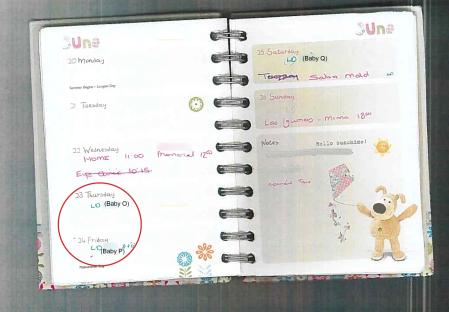 June
20 Monday
Summer Begins - Longest Day
21 Tuesday
22 Wednesday
HOME 11:00 Memorial 12
Eye Clinic 10:15
23 Thursday
LD (Baby O)
24 Friday
LD
(Baby P)
June
25 Saturday
LD (Baby Q)
Salsa Mold
26 Sunday
Las Iguanas - Minna 18
Notes
Hello sunshine!